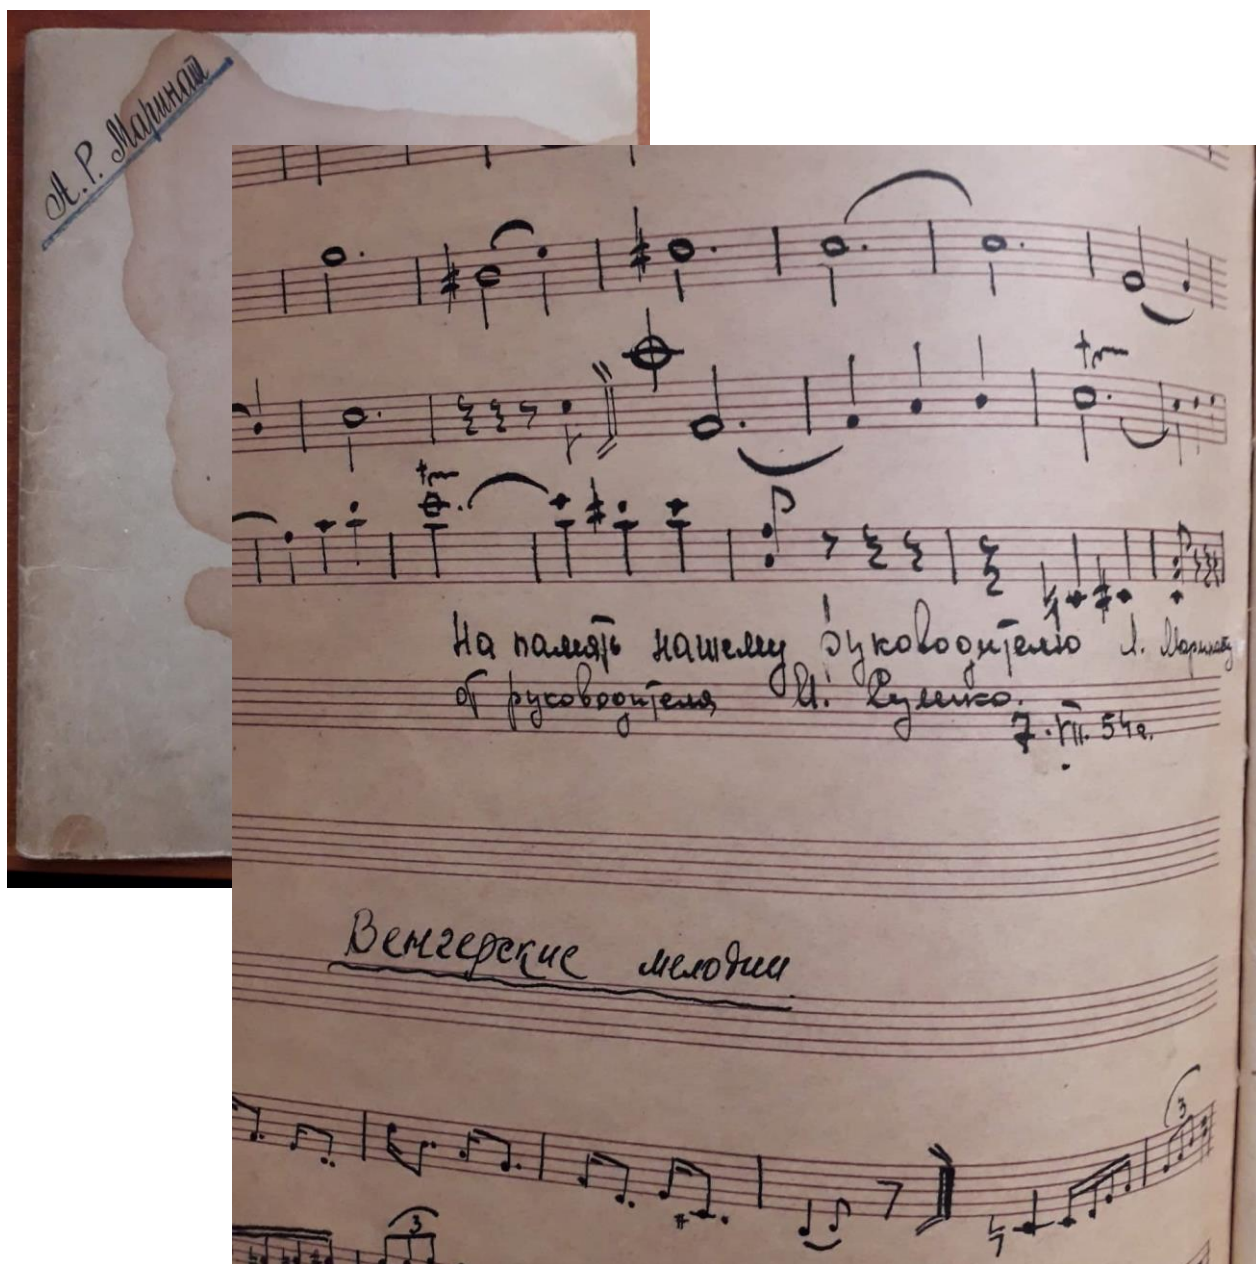 А. Р. Маринат
На память нашему руководителю А. Маринату
от руководителя И.
7.VII.54г.
Венгерские мелодии
3
3